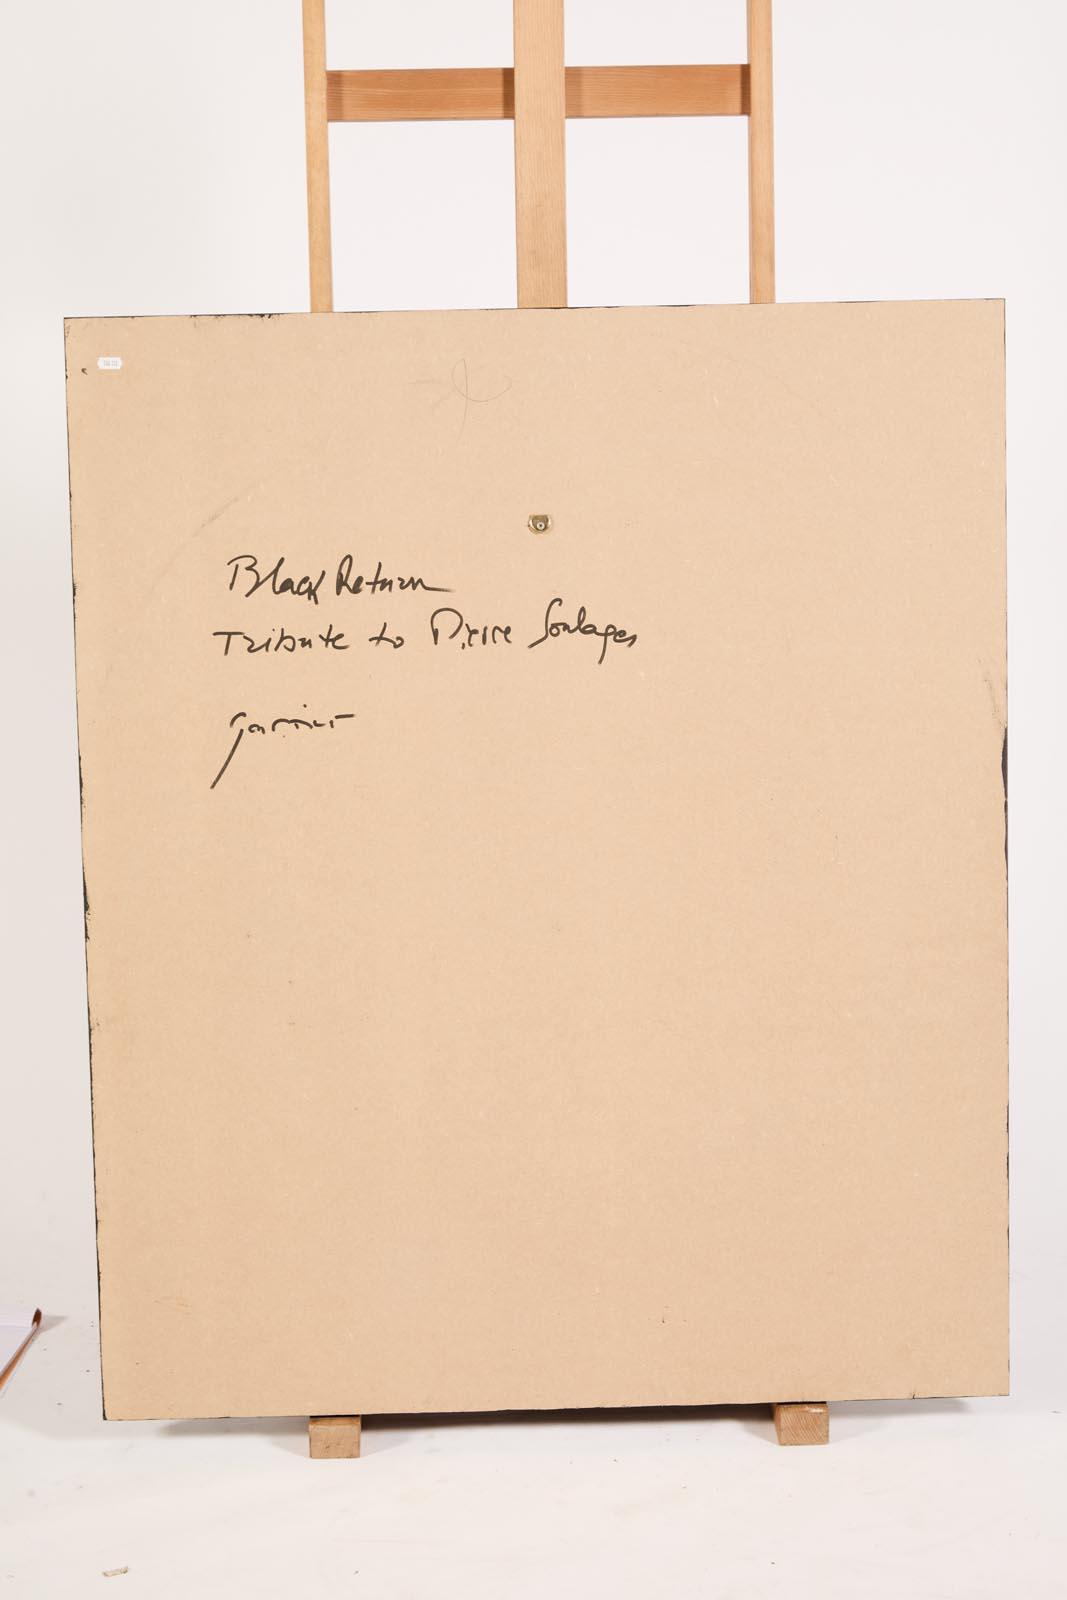 Black Return
Tribute to Pierre Soulages